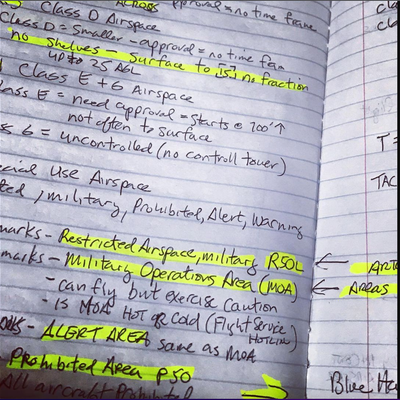 ACROSS approval = no time frame
Class D Airspace
Class D = Smaller - approval = no time
no shelves - Surface to no fraction
up to 25 AGL
Class E + G Airspace
Class E = need approval = Starts @ 700' ↑
not often to surface
G = uncontrolled (no controll tower)
Use Airspace
, military, Prohibited, Alert, Warning
marks - Restricted Airspace, military
marks - Military Operations Area (MOA)
- can fly but exercise caution
- is MOA HOT or Cold (Flight Service HOTLINE)
- ALERT AREA same as MOA
Prohibited Area P50
All aircraft Prohibited
T =
TAC
AREAS
Blue